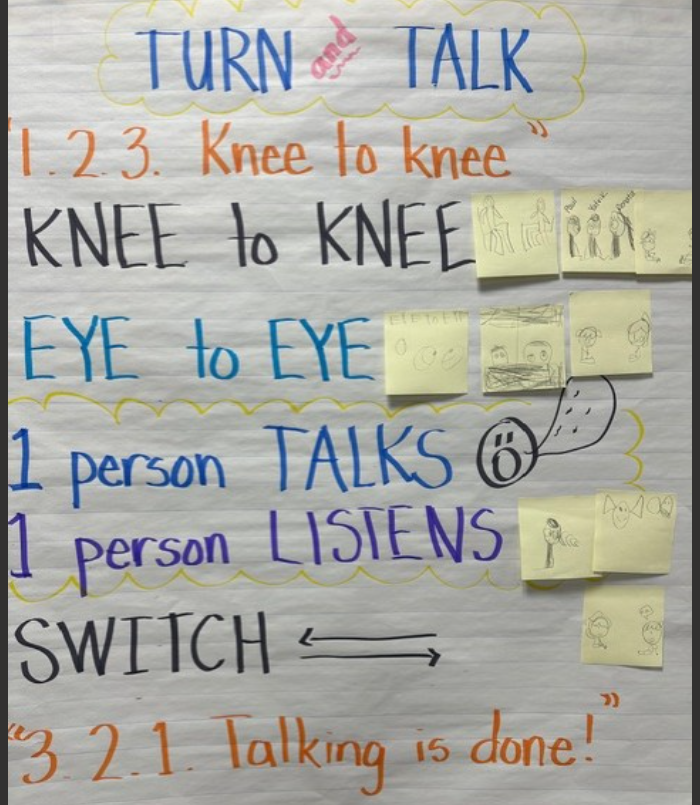 TURN and TALK
"1.2.3. Knee to knee"
KNEE to KNEE
EYE to EYE
1 person TALKS
1 person LISTENS
SWITCH
"3.2.1. Talking is done!"